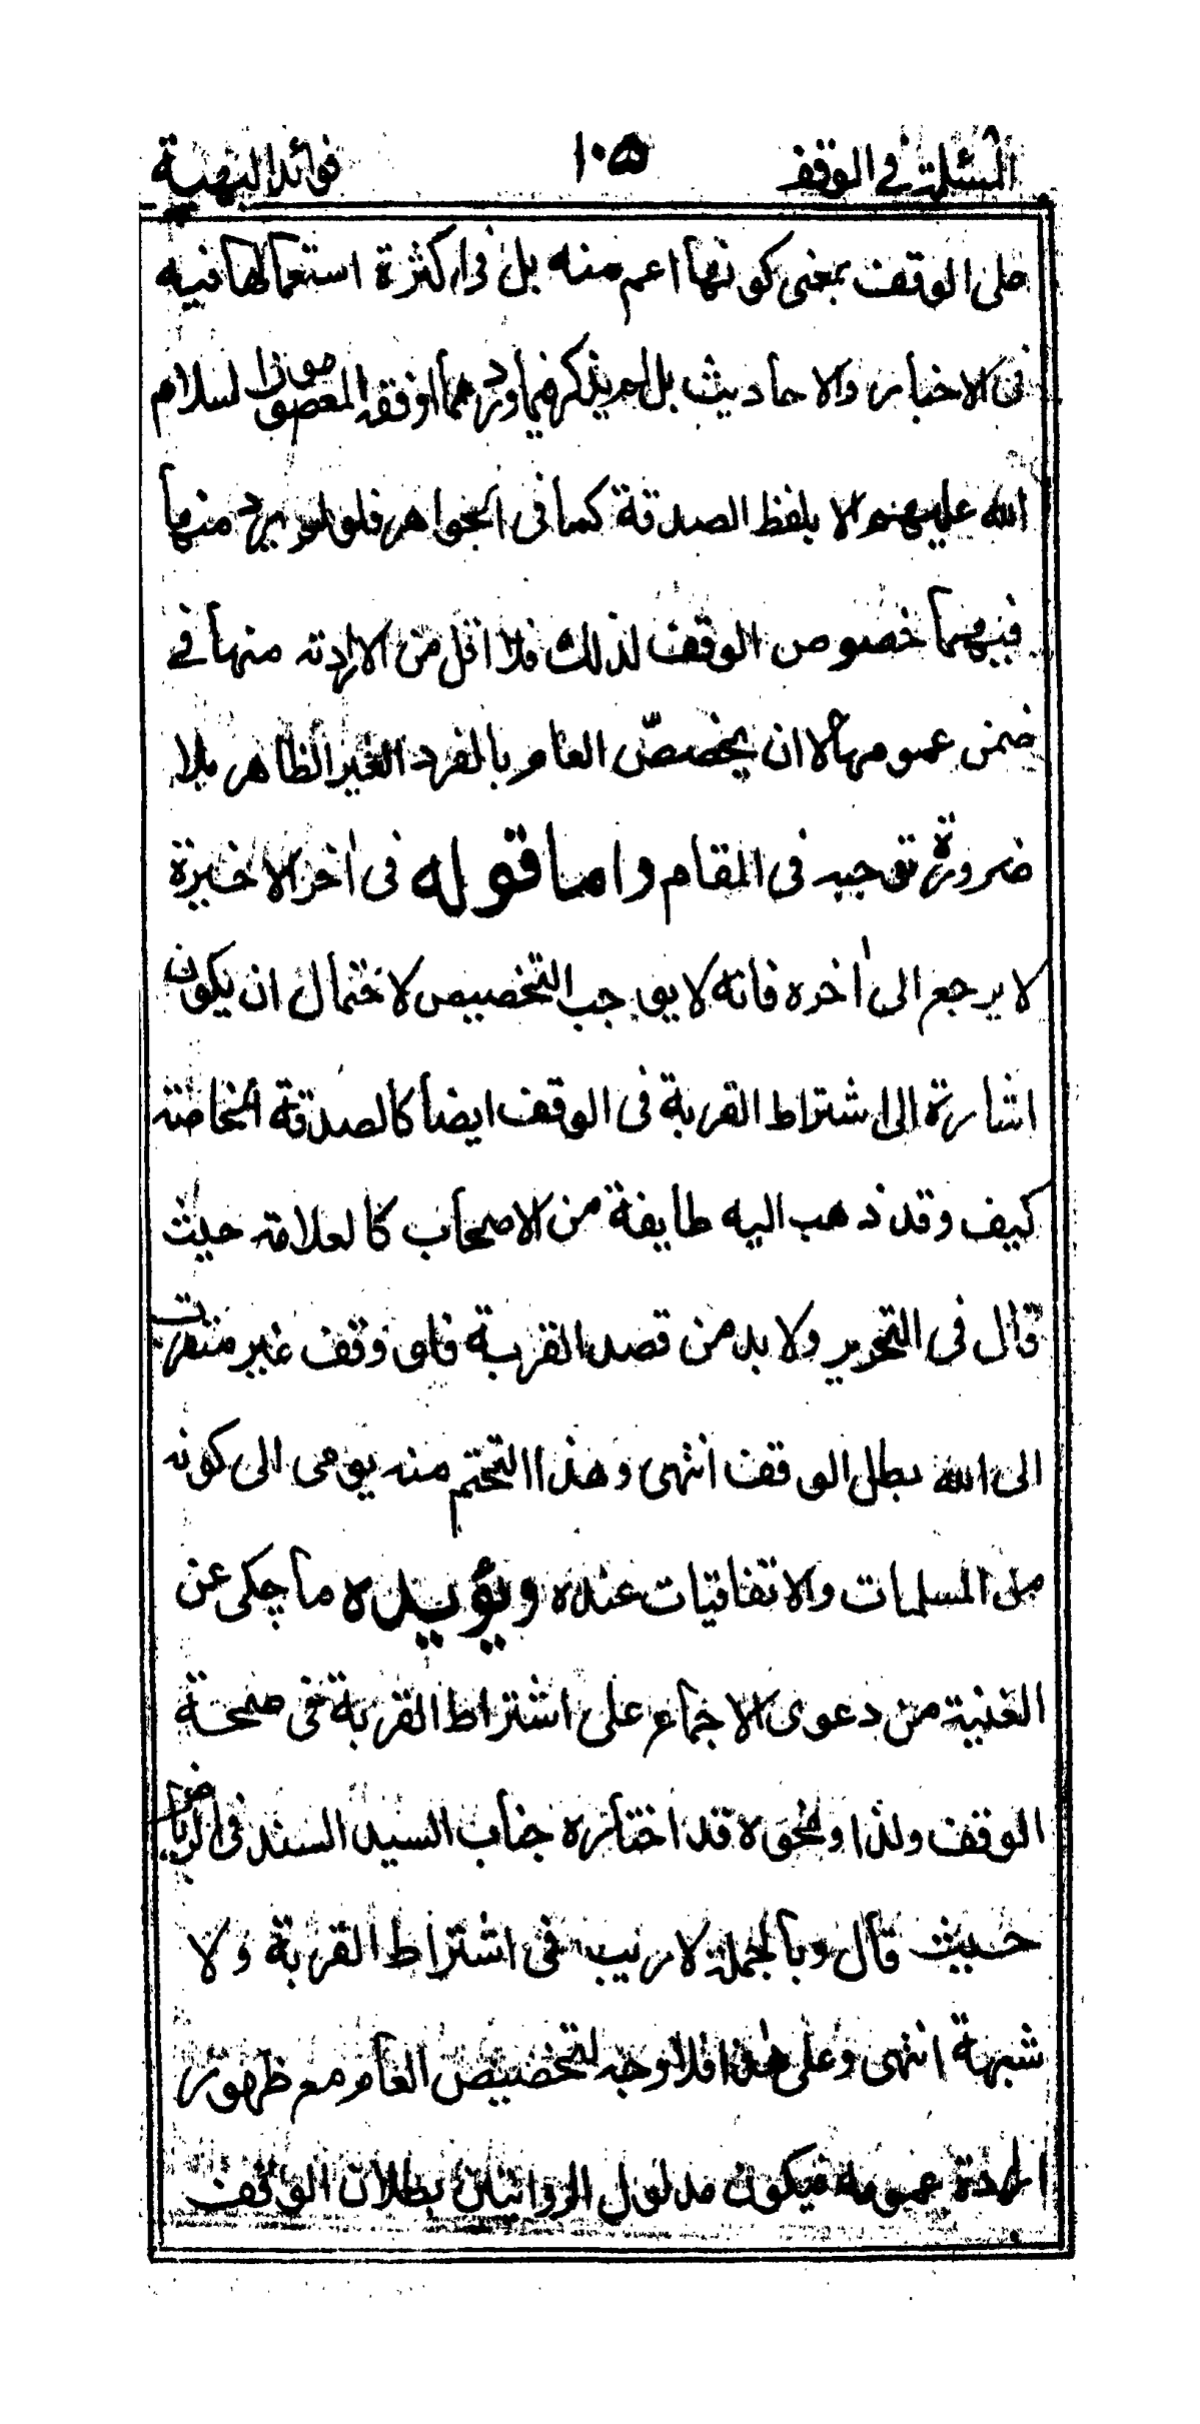 المسئلة في الوقف ١٠٥ فوائد البهية
على الوقف بمعنى كونها اعم منه بل في كثرة استعمالها فيه
فى الاخبار والاحاديث بل لم يذكر فيما ورد مما اوقفه المعصومون سلام
الله عليهم الا بلفظ الصدقة كما فى الجواهر فلو لم يرد منها
فيهما خصوص الوقف لذلك فلا اقل من الارادته منها في
ضمن عمومها لا ان يخصص العام بالفرد الغير الظاهر بلا
ضرورة توجبه فى المقام واما قوله فى اخر الاخيرة
لا يرجع الى اخره فانه لا يوجب التخصيص لاحتمال ان يكون
اشارة الى اشتراط القربة فى الوقف ايضا كالصدقة الخاصة
كيف وقد ذهب اليه طايفة من الاصحاب كالعلامة حيث
قال فى التحرير ولا بد من قصد القربة فلو وقف غير متقرب
الى الله بطل الوقف انتهى وهذا التحتم منه يومى الى كونه
من المسلمات والاتفاقيات عنده ويؤيده ما حكى عن
الغنية من دعوى الاجماع على اشتراط القربة فى صحة
الوقف ولذا ونحوه قد اختاره جناب السيد السند فى الرياض
حيث قال وبالجملة لا ريب فى اشتراط القربة ولا
شبهة انتهى وعلى هذا فلا وجه لتخصيص العام مع ظهور
ارادة عمومه فيكون مدلول الروايتين بطلان الوقف